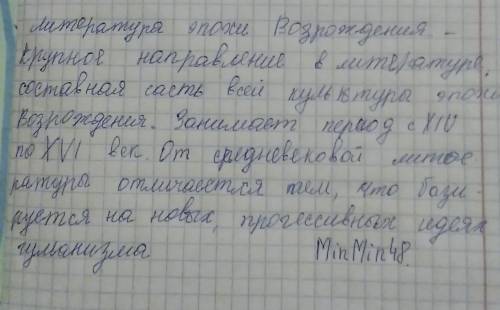 Литература эпохи Возрождения -
крупное направление в литературе,
составная састь всей культура эпохи
Возрождения. Занимает период с XIV
по XVI век. От средневековой лите
ратуры отличается тем, что бази
руется на новых, прогессивных идеях
гуманизма MinMin48.